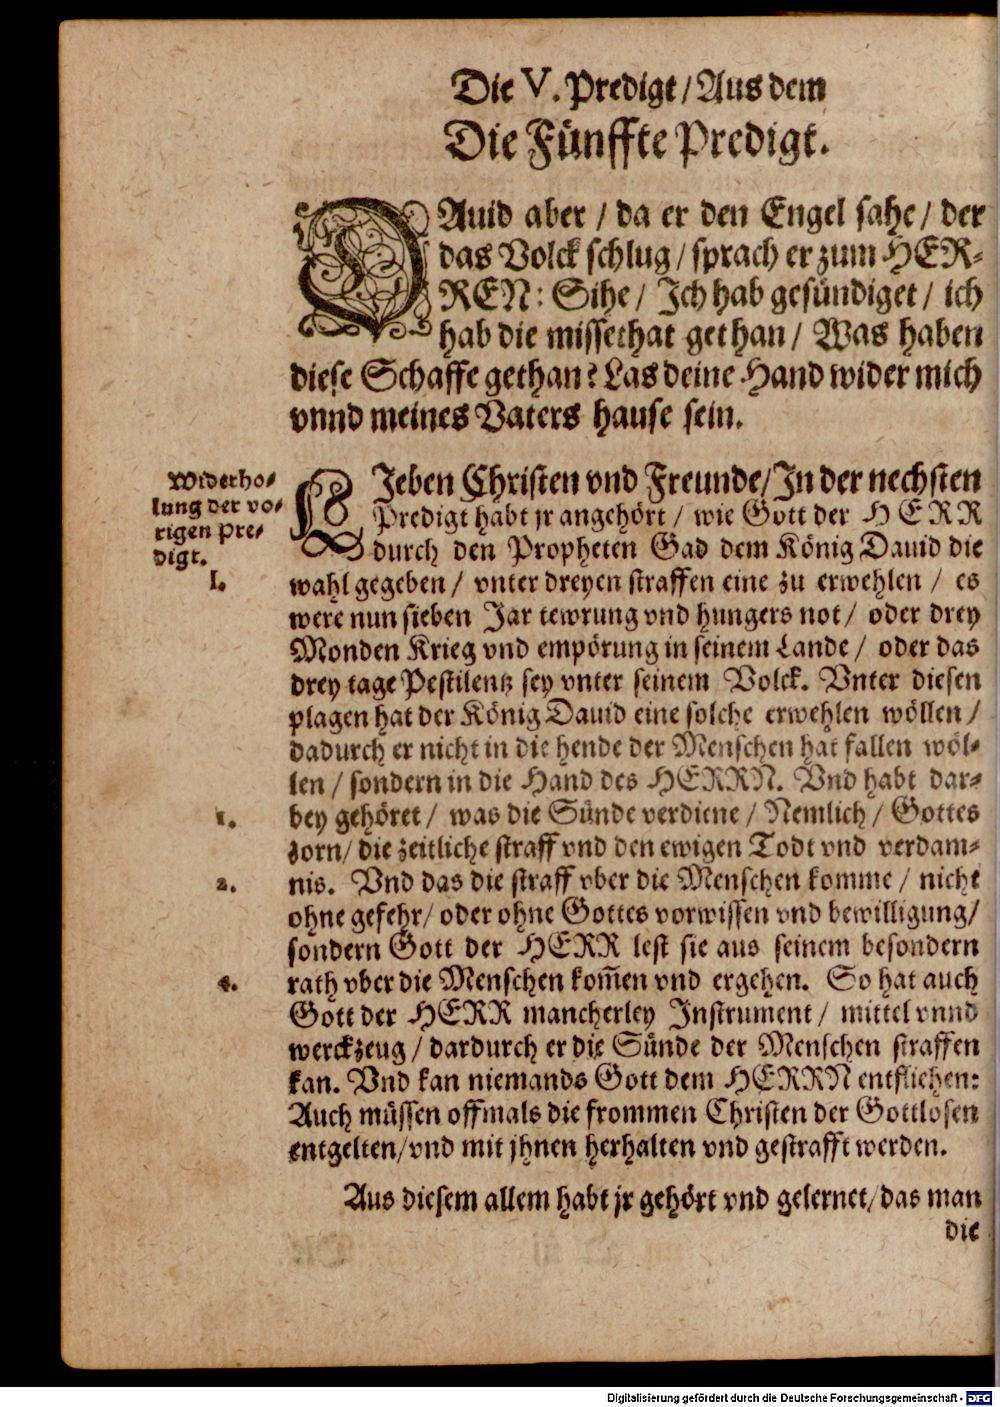 Die V. Predigt / Aus dem
Die Fünffte Predigt.
DAuid aber / da er den Engel sahe / der
das Volck schlug / sprach er zum HER-
REN: Sihe / Ich hab gesündiget / ich
hab die missethat gethan / Was haben
diese Schaffe gethan? Las deine Hand wider mich
vnnd meines Vaters hause sein.
Widerho-
lung der vo-
rigen Pre-
digt.
LJeben Christen vnd Freunde / In der nechsten
Predigt habt jr angehört / wie Gott der HERR
durch den Propheten Gad dem König Dauid die
I.
wahl gegeben / vnter dreyen straffen eine zu erwehlen / es
were nun sieben Jar tewrung vnd hungers not / oder drey
Monden Krieg vnd empörung in seinem Lande / oder das
drey tage Pestilentz sey vnter seinem Volck. Vnter diesen
plagen hat der König Dauid eine solche erwehlen wöllen /
dadurch er nicht in die hende der Menschen hat fallen wöl-
len / sondern in die Hand des HERRN. Vnd habt dar-
1.
bey gehöret / was die Sünde verdiene / Nemlich / Gottes
zorn / die zeitliche straff vnd den ewigen Todt vnd verdam-
2.
nis. Vnd das die straff vber die Menschen komme / nicht
ohne gefehr / oder ohne Gottes vorwissen vnd bewilligung /
sondern Gott der HERR lest sie aus seinem besondern
4.
rath vber die Menschen kom̃en vnd ergehen. So hat auch
Gott der HERR mancherley Instrument / mittel vnnd
werckzeug / dardurch er die Sünde der Menschen straffen
kan. Vnd kan niemands Gott dem HERRN entfliehen:
Auch müssen offmals die frommen Christen der Gottlosen
entgelten / vnd mit jhnen herhalten vnd gestrafft werden.
Aus diesem allem habt jr gehört vnd gelernet / das man
die
Digitalisierung gefördert durch die Deutsche Forschungsgemeinschaft - DFG